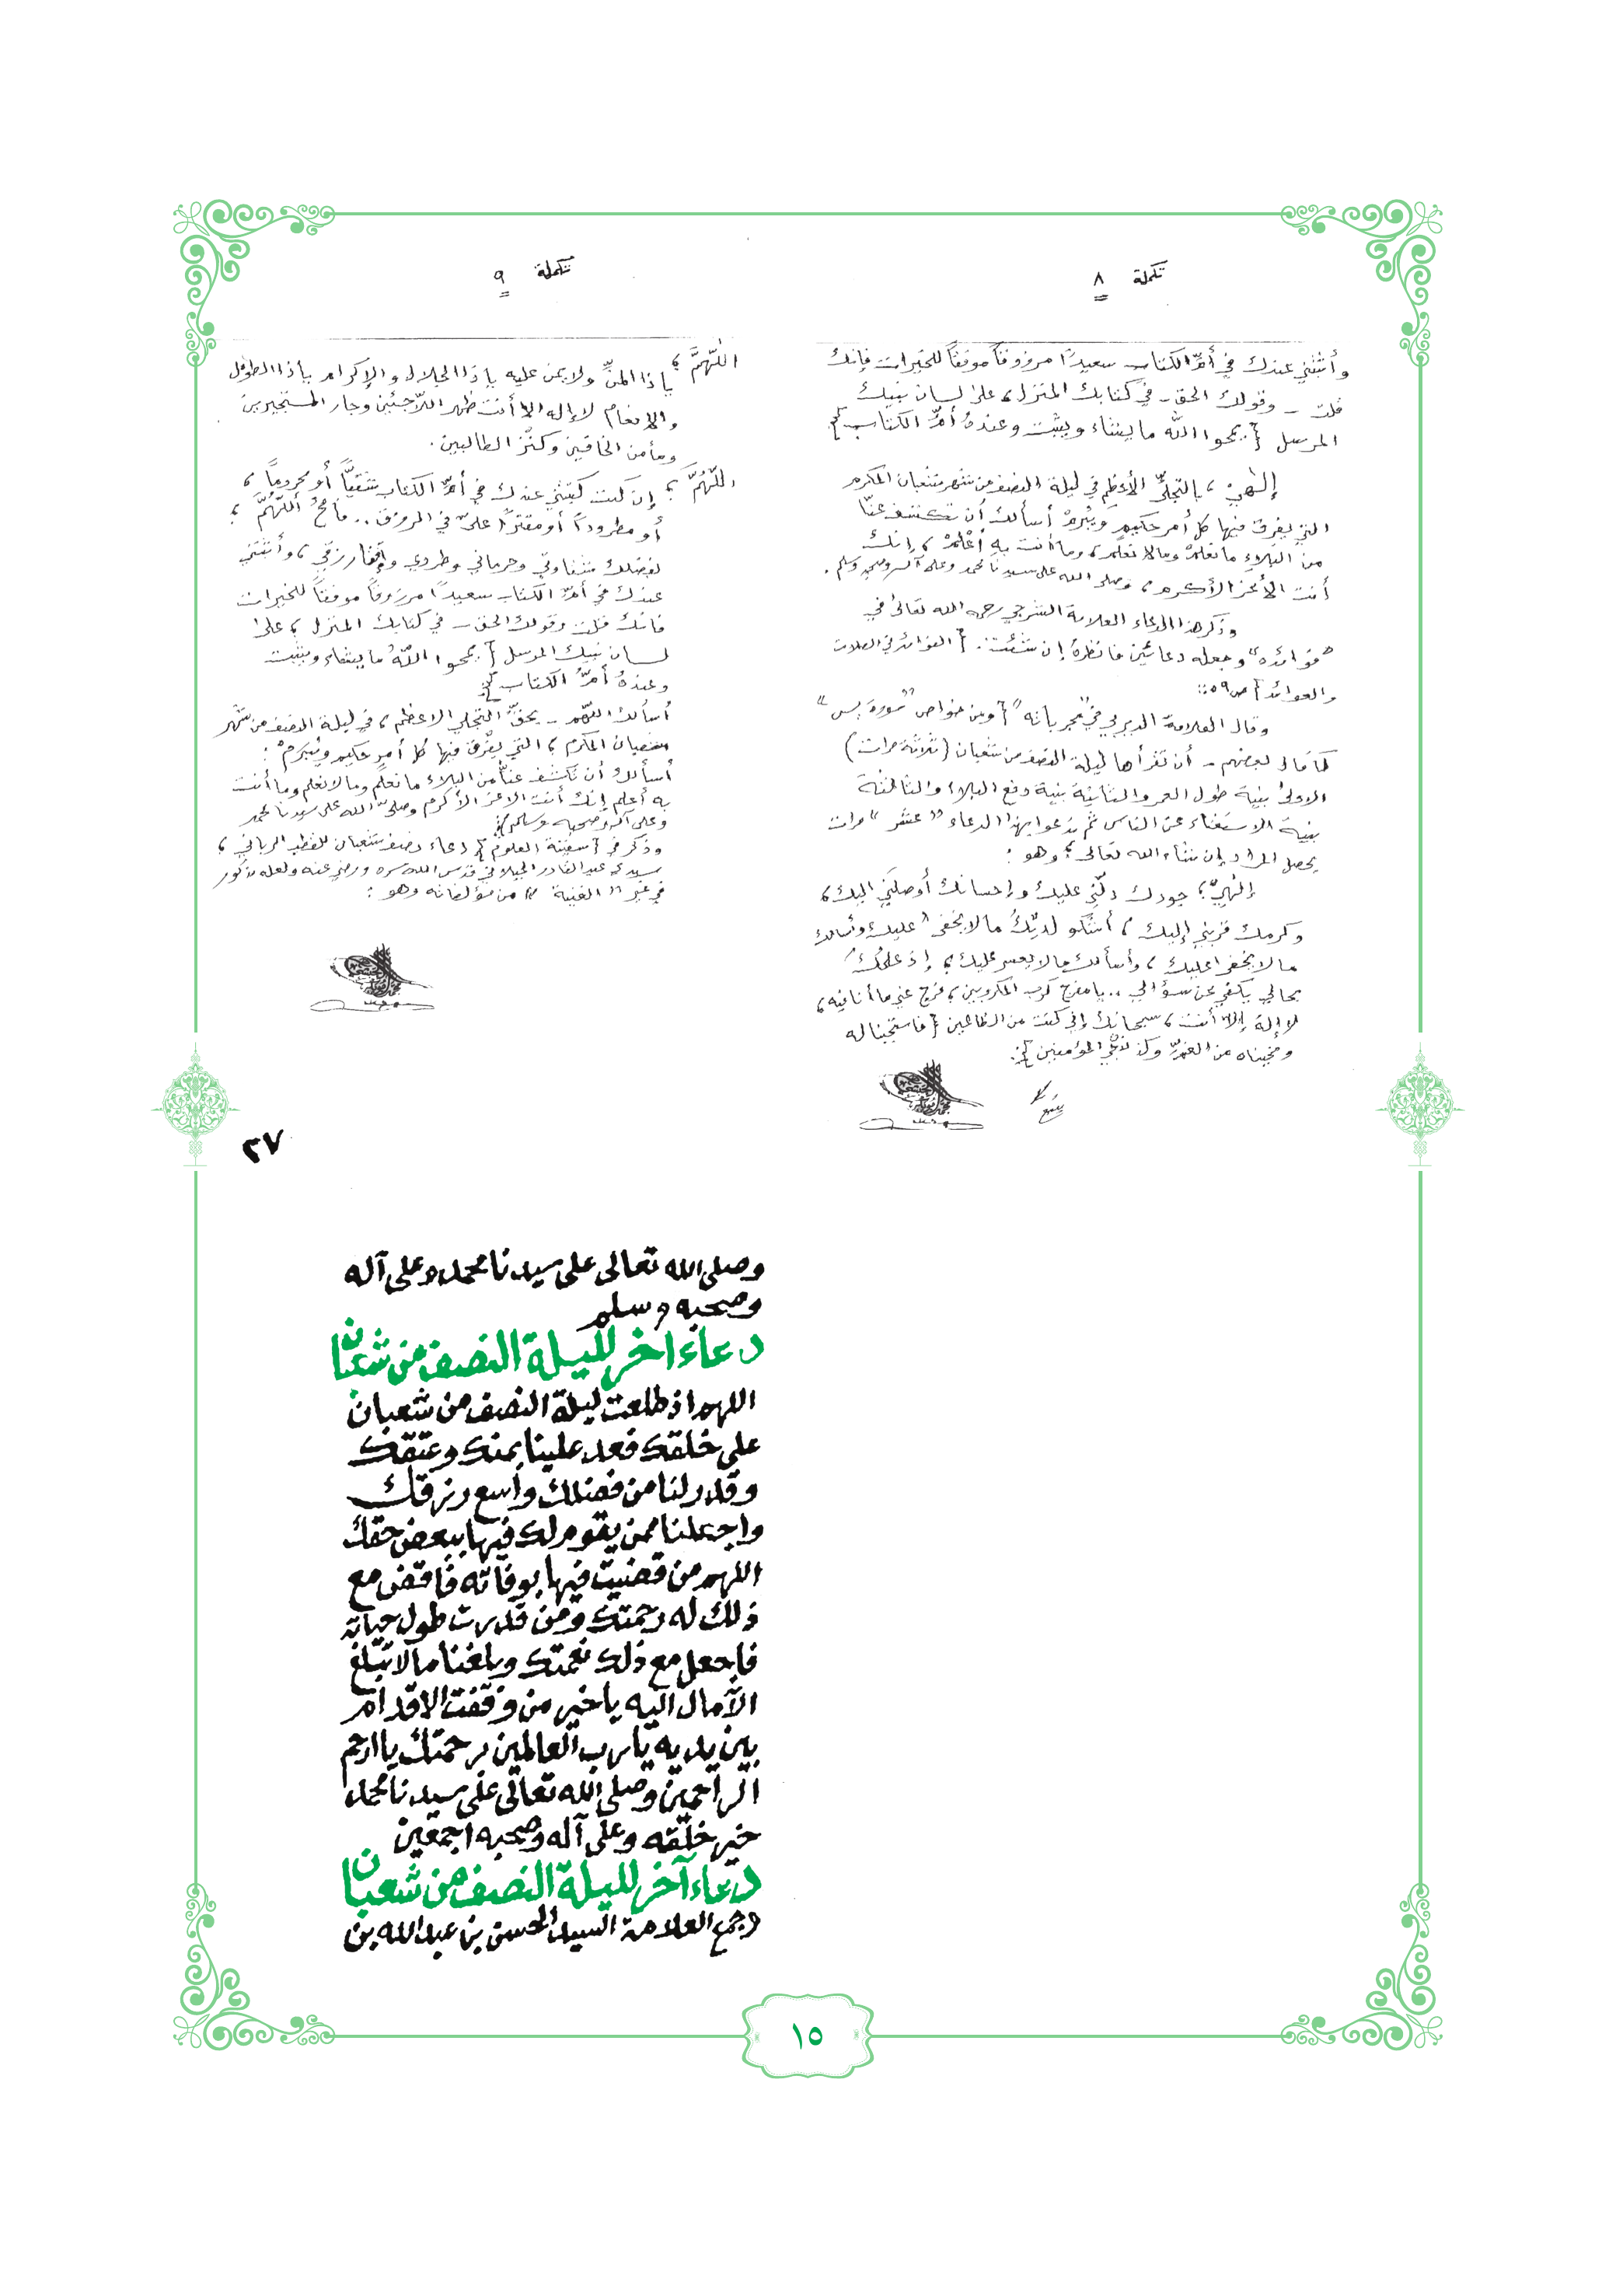 تكملة ٨
وأثبتني عندك في أمّ الكتاب سعيداً مرزوقاً موفقاً للخيرات فإنك
قلت – وقولك الحق – في كتابك المنزل، على لسان نبيك
المرسل {يمحوا الله ما يشاء ويثبت وعندهُ أمُّ الكتاب}.
إلٰهيْ، بالتجلّيْ الأعظم في ليلة النصف من شهر شعبان المكرم
التي يفرق فيها كل أمر حكيم ويُبرمْ أسألك أن تكشف عنّا
من البلاء ما نعلمْ وما لا نعلم، وما أنت به أعْلمْ، إنك
أنت الأعز الأكرم، وصلى الله على سيدنا محمد وعلى آله وصحبه وسلم.
وذكر هذا الدعاء العلامة الشرجي رحمه الله تعالى في
"فوائده" وجعله دعائين فانظرهُ إن شئت. {الفوائد في الصلات
والعوائد} ص ٥٩:
وقال العلامة الديربي في "مجرباته" {ومن خواص "سورة يس"
كما قال بعضهم – أن تقرأها ليلة النصف من شعبان (ثلاثة مرات)
الاولى بنية طول العمر والثانية بنية دفع البلاء والثالثة
بنية الاستغناء عن الناس ثم تدعوا بهذا الدعاء "عشر" مرات
يحصل المراد إن شاء الله تعالى؛ وهو:
إلٰهيْ؛ جودك دلّني عليك وإحسانك أوصلَني إليك،
وكرمك قربني إليك، أشكو لديْكُ ما لا يخفى عليك وأسألك
ما لا يخفى عليك، وأسألك ما لا يعسر عليك، إذ علمُكَ
بحالي يكفي عن سؤالي.. يا مفرج كرب المكروبين، فرج عني ما أنا فيه،
لا إلهَ إلاّ أنت، سبحانك إني كنت من الظالمين {فاستجبنا له
ونجيناه من الغمّ وكذلك نُنجي المؤمنين}:
يتبع
تكملة ٩
اللّهمَّ؛ يا ذا المنّ ولا يمن عليه يا ذا الجلال والإكرام يا ذا الطول
والإنعام لا إله إلا أنت ظهر اللاّجئين وجار المستجيرين
ومأمن الخائفين وكنز الطالبين.
اللّهُمَّ؛ إن كنت كتبتني عندك في أمّ الكتاب شقيّاً أو محروماً،
أو مطروداً أو مقتراً عليّ في الرزق.. فامحُ اللّهُمَّ؛
بفضلك شقاوتي وحرماني وطردي وإقتار رزقي، وأثبتني
عندك في أمّ الكتاب سعيداً مرزوقاً موفقاً للخيرات
فإنك قلت وقولك الحق – في كتابك المنزل، على
لسان نبيك المرسل {يمحوا اللهُ ما يشاء ويثبت
وعندهُ أمُّ الكتاب}:
أسألك اللهم – بحقّ التجلي الاعظم، في ليلة النصف من شهر
شعبان المكرم، التي يفْرَق فيها كل أمر حكيم ويُبرَمْ:
أسألك أن تكشف عنّا من البلاء ما نعلم وما لا نعلم وما أنت
به أعلم إنك أنت الاعز الأكرم وصلىّ الله على سيدنا محمد
وعلى آله وصحبه وسلم}:
وذكر في {سفينة العلوم} دعاء نصف شعبان للقطب الرباني،
سيدي عبد القادر الجيلاني قدس الله سره ورضي عنه ولعله مذكور
في غير "الغنية"، من مؤلفاته وهو:
٢٧
وصلى الله تعالى على سيدنا محمد وعلى آله
وصحبه وسلم
دعاء اخر لليلة النصف من شعبان
اللهم اذ طلعت ليلة النصف من شعبان
على خلقك فعد علينا بمنك وعتقك
وقدر لنا من فضلك واسع رزقك
واجعلنا ممن يقوم لك فيها ببعض حقك
اللهم من قضيت فيها بوفاته فاقض مع
ذلك له رحمتك ومن قدرت طول حياته
فاجعل مع ذلك نعمتك وبلغنا ما لا تبلغ
الآمال اليه يا خير من وقفت الاقدام
بين يديه يا رب العالمين برحمتك يا ارحم
الراحمين وصلى الله تعالى على سيدنا محمد
خير خلقه وعلى آله وصحبه اجمعين
دعاء آخر لليلة النصف من شعبان
وجمع العلامة السيد الحسن بن عبد الله بن
١٥